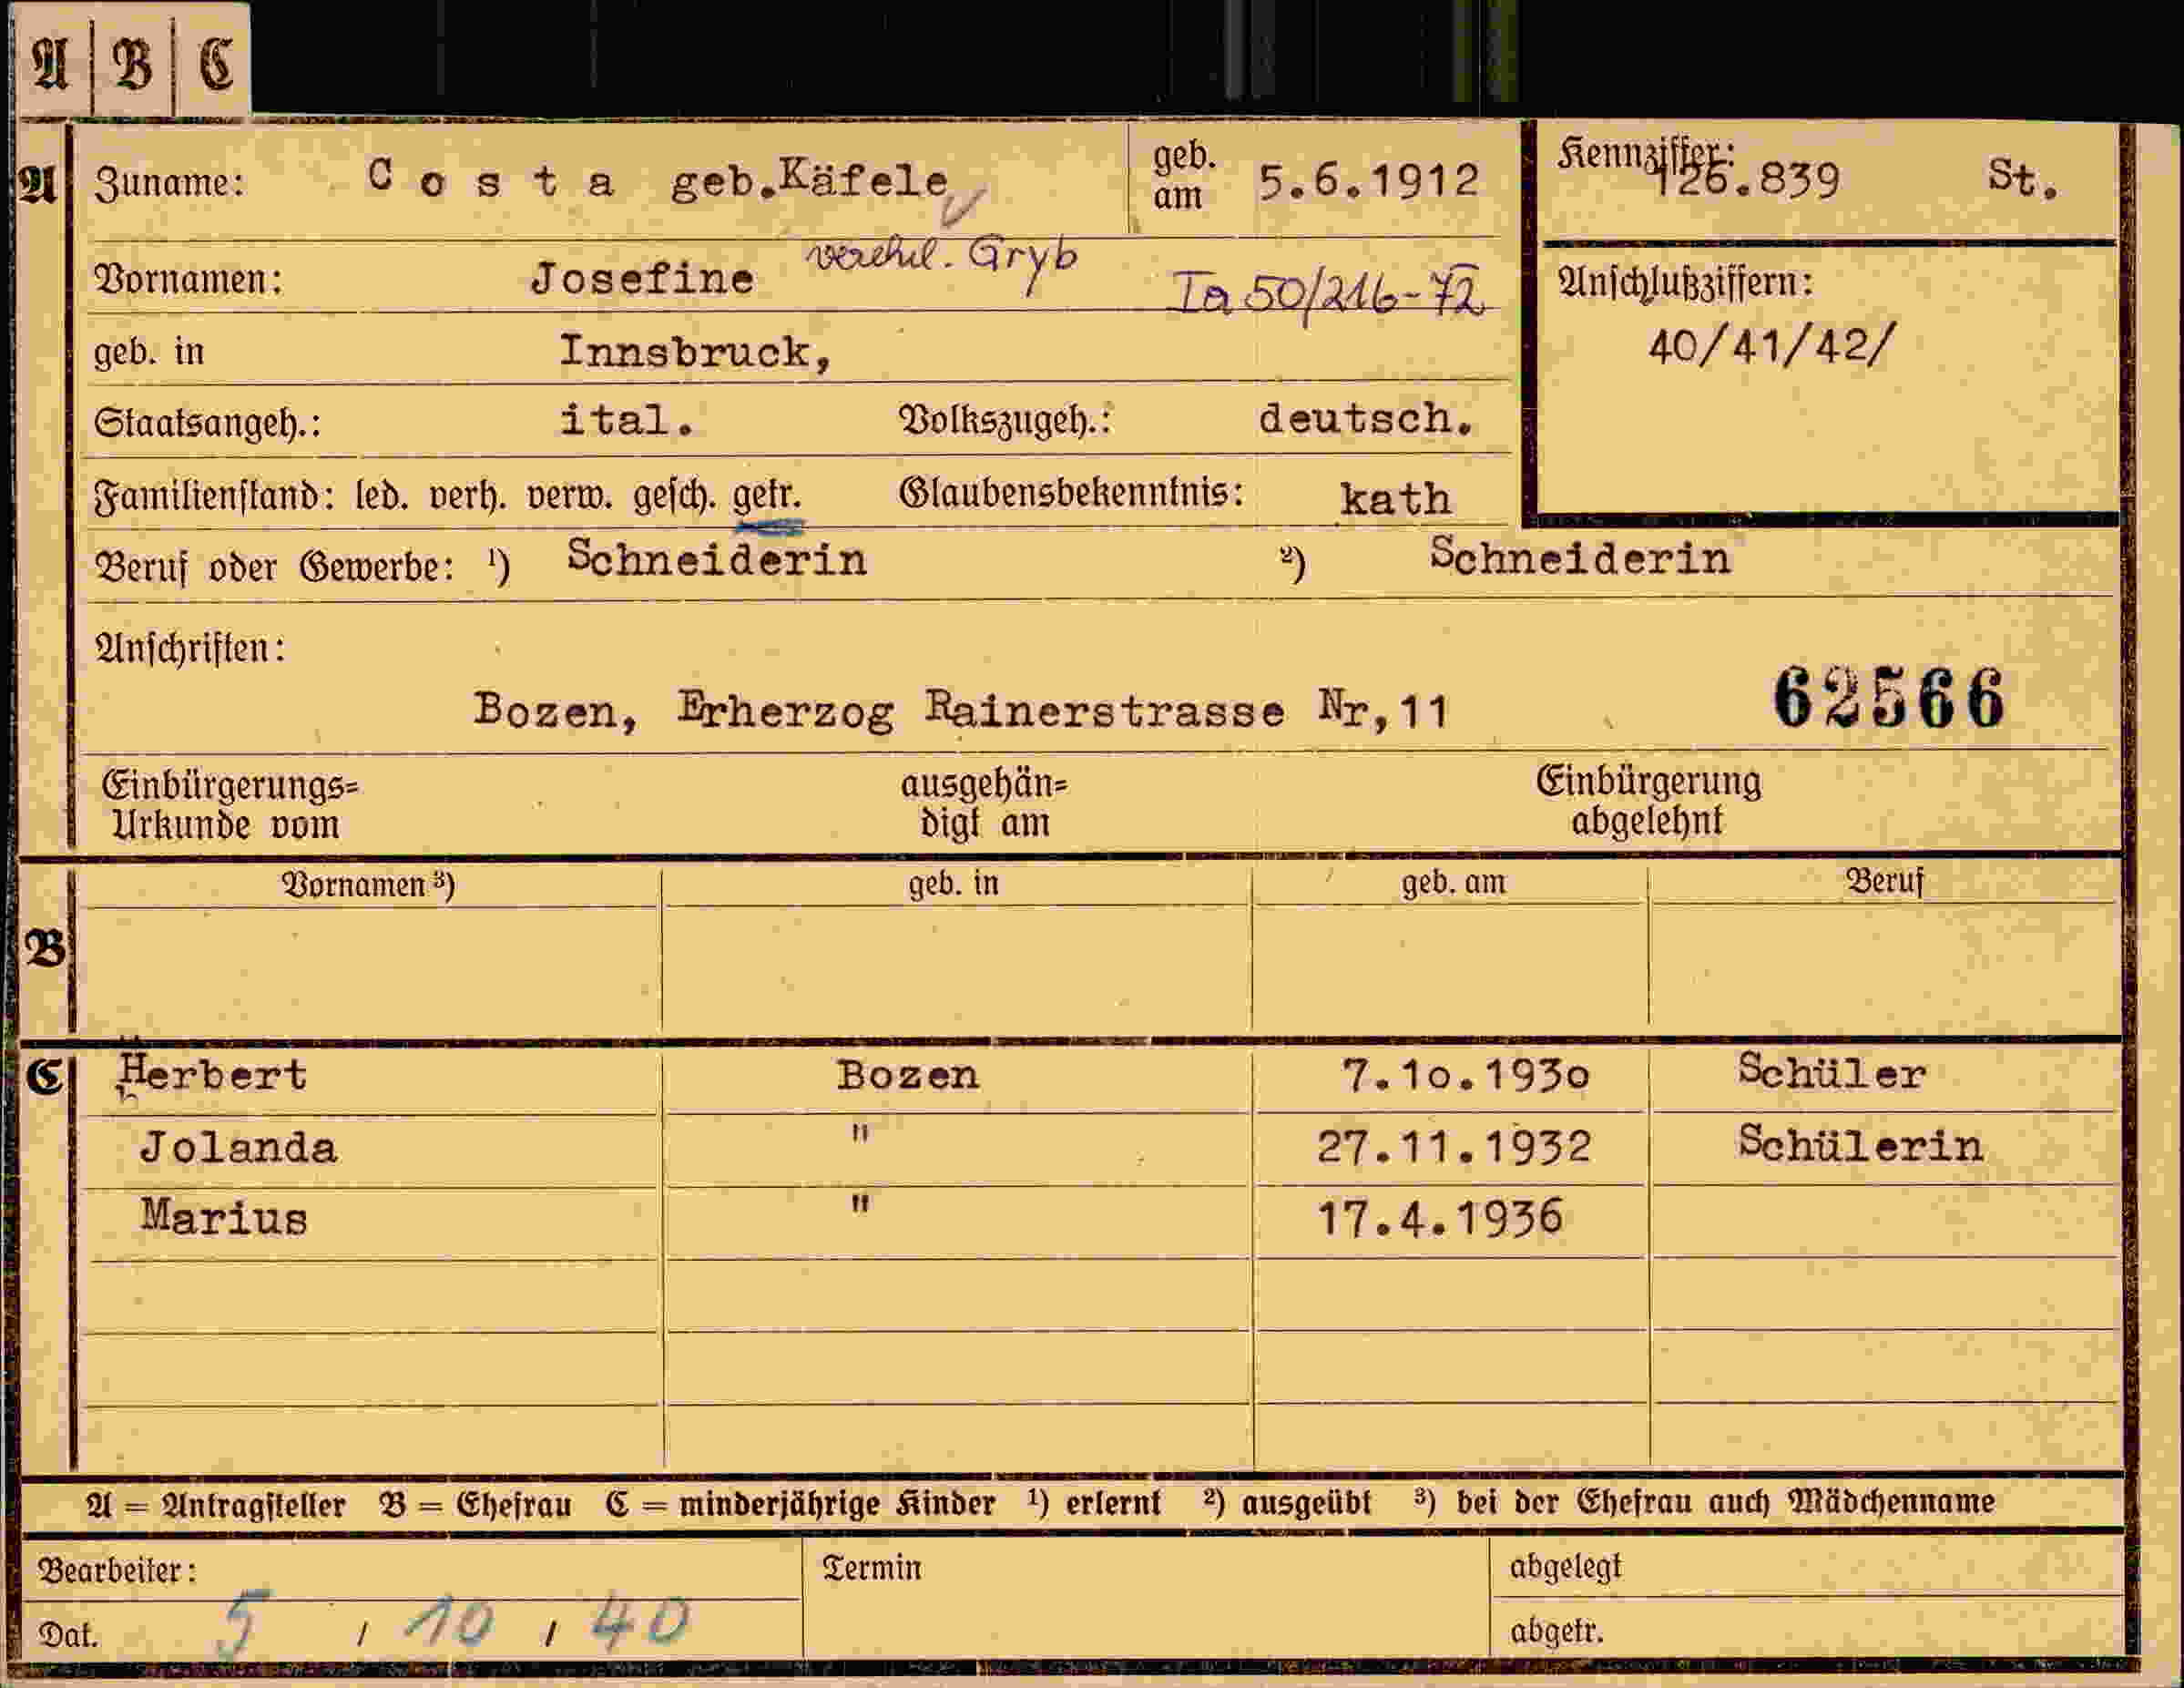 A B C
A Zuname: Costa geb.Käfele geb. am 5.6.1912 Kennziffer: 126.839 St.
verehel. Gryb
Vornamen: Josefine Ia 50/216-72 Anschlußziffern:
geb. in Innsbruck, 40/41/42/
Staatsangeh.: ital. Volkszugeh.: deutsch.
Familienstand: led. verh. verw. gesch. getr. Glaubensbekenntnis: kath
Beruf oder Gewerbe: ¹) Schneiderin ²) Schneiderin
Anschriften:
Bozen, Erherzog Rainerstrasse Nr,11 62566
Einbürgerungs= ausgehän= Einbürgerung
Urkunde vom digt am abgelehnt
Vornamen ³) geb. in geb. am Beruf
B
C Herbert Bozen 7.10.1930 Schüler
Jolanda " 27.11.1932 Schülerin
Marius " 17.4.1936
A = Antragsteller B = Ehefrau C = minderjährige Kinder ¹) erlernt ²) ausgeübt ³) bei der Ehefrau auch Mädchenname
Bearbeiter: Termin abgelegt
Dat. 5 / 10 / 40 abgetr.